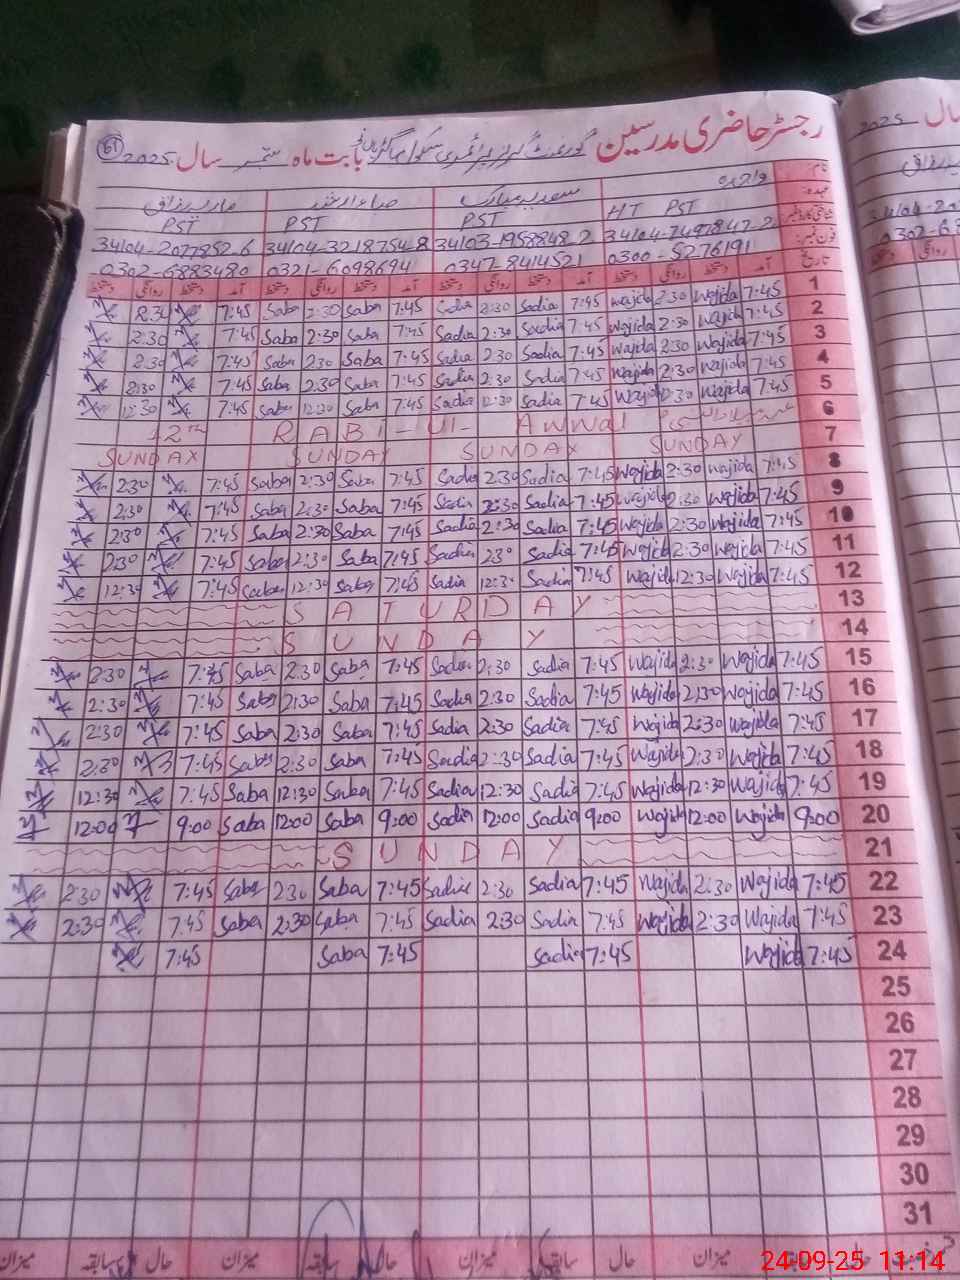 رجسٹر حاضری مدرسین گورنمنٹ گرلز پرائمری سکول بابت ماہ ستمبر سال 2025 61
نام: واجدہ سعدیہ مبارک صباء
عہدہ: HT PST PST PST PST
شناختی کارڈ نمبر 34104-7497847-2 34103-1958848-2 34104-3218754-8 34104-2077852-6
فون نمبر: 0300-5276191 0347-8414521 0321-6098694 0302-6883480
تاریخ آمد دستخط روانگی دستخط آمد دستخط روانگی دستخط آمد دستخط روانگی دستخط آمد دستخط روانگی دستخط
1 7:45 Wajida 2:30 Wajida 7:45 Sadia 2:30 Sadia 7:45 Saba 2:30 Saba 7:45 2:30
2 7:45 Wajida 2:30 Wajida 7:45 Sadia 2:30 Sadia 7:45 Saba 2:30 Saba 7:45 2:30
3 7:45 Wajida 2:30 Wajida 7:45 Sadia 2:30 Sadia 7:45 Saba 2:30 Saba 7:45 2:30
4 7:45 Wajida 2:30 Wajida 7:45 Sadia 2:30 Sadia 7:45 Saba 2:30 Saba 7:45 2:30
5 7:45 Wajida 12:30 Wajida 7:45 Sadia 12:30 Sadia 7:45 Saba 12:30 Saba 7:45 12:30
6 12th RABI-UL-AWWAL
7 SUNDAY SUNDAY SUNDAY SUNDAY
8 7:45 Wajida 2:30 Wajida 7:45 Sadia 2:30 Sadia 7:45 Saba 2:30 Saba 7:45 2:30
9 7:45 Wajida 2:30 Wajida 7:45 Sadia 2:30 Sadia 7:45 Saba 2:30 Saba 7:45 2:30
10 7:45 Wajida 2:30 Wajida 7:45 Sadia 2:30 Sadia 7:45 Saba 2:30 Saba 7:45 2:30
11 7:45 Wajida 2:30 Wajida 7:45 Sadia 2:30 Sadia 7:45 Saba 2:30 Saba 7:45 2:30
12 7:45 Wajida 12:30 Wajida 7:45 Sadia 12:30 Sadia 7:45 Saba 12:30 Saba 7:45 12:30
13 SATURDAY
14 SUNDAY
15 7:45 Wajida 2:30 Wajida 7:45 Sadia 2:30 Sadia 7:45 Saba 2:30 Saba 7:45 2:30
16 7:45 Wajida 2:30 Wajida 7:45 Sadia 2:30 Sadia 7:45 Saba 2:30 Saba 7:45 2:30
17 7:45 Wajida 2:30 Wajida 7:45 Sadia 2:30 Sadia 7:45 Saba 2:30 Saba 7:45 2:30
18 7:45 Wajida 2:30 Wajida 7:45 Sadia 2:30 Sadia 7:45 Saba 2:30 Saba 7:45 2:30
19 7:45 Wajida 12:30 Wajida 7:45 Sadia 12:30 Sadia 7:45 Saba 12:30 Saba 7:45 12:30
20 9:00 Wajida 12:00 Wajida 9:00 Sadia 12:00 Sadia 9:00 Saba 12:00 Saba 9:00 12:00
21 SUNDAY
22 7:45 Wajida 2:30 Wajida 7:45 Sadia 2:30 Sadia 7:45 Saba 2:30 Saba 7:45 2:30
23 7:45 Wajida 2:30 Wajida 7:45 Sadia 2:30 Sadia 7:45 Saba 2:30 Saba 7:45 2:30
24 7:45 Wajida 7:45 Sadia 7:45 Saba 7:45
25
26
27
28
29
30
31
حال سابقہ میزان حال سابقہ میزان حال سابقہ میزان حال سابقہ میزان
24-09-25 11:14
سال 2025